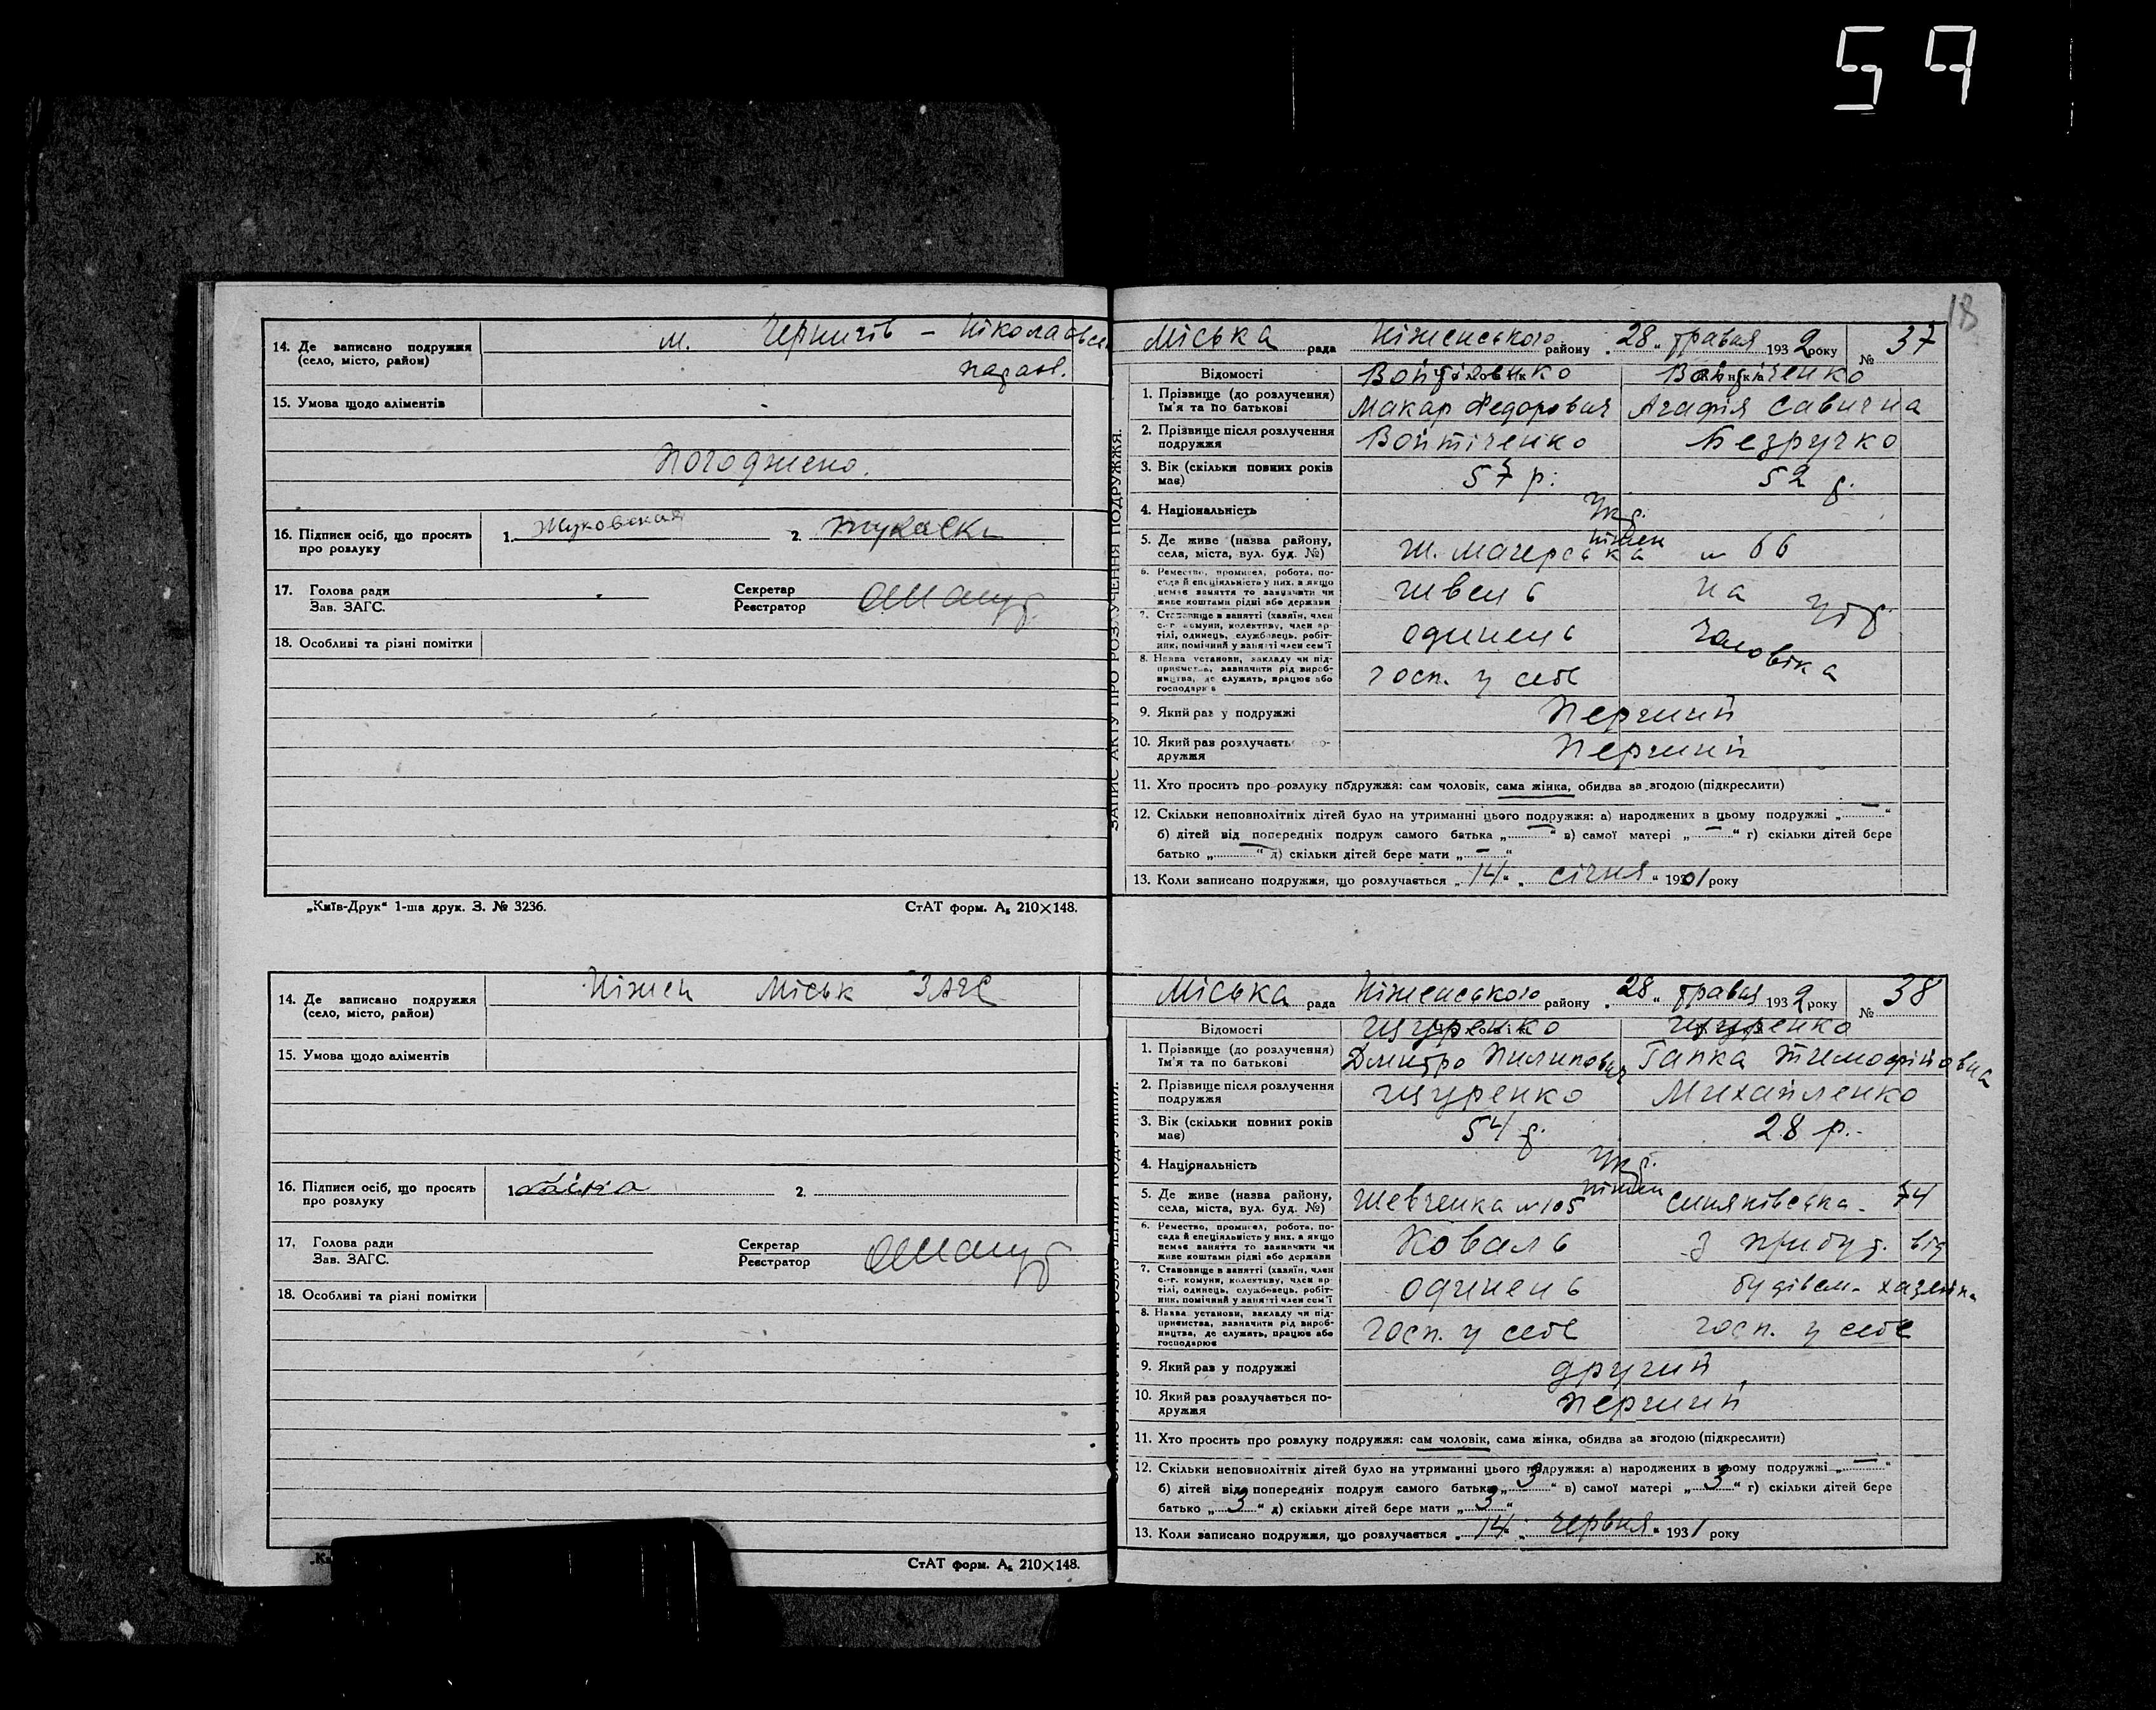 59
14. Де записано подружжя (село, місто, район)
м. Чернигів – Ніколаєвськ
15. Умова щодо аліментів
Погоджено.
16. Підписи осіб, що просять про розлуку
1. Жуковская 2.
17. Голова ради
Зав. ЗАГС.
Секретар
Реєстратор
18. Особливі та різні помітки
„Київ-Друк“ 1-ша друк. З. № 3236.
СтАТ форм. А₅ 210×148.
14. Де записано подружжя (село, місто, район)
Ніжен Міськ ЗАГС
15. Умова щодо аліментів
16. Підписи осіб, що просять про розлуку
1. 2.
17. Голова ради
Зав. ЗАГС.
Секретар
Реєстратор
18. Особливі та різні помітки
СтАТ форм. А₅ 210×148.
18
ЗАПИС АКТУ ПРО РОЗЛУЧЕННЯ ПОДРУЖЖЯ.
Міська рада Ніженського району „28“ травня 1932 року № 37
Відомості
Чоловік
Жінка
1. Прізвище (до розлучення) ім'я та по батькові
Войтіченко Макар Федорович
Войтіченко Агафія Савична
2. Прізвище після розлучення подружжя
Войтіченко
Безручко
3. Вік (скільки повних років має)
57 р.
52 р.
4. Національність
Укр.
5. Де живе (назва району, села, міста, вул. буд. №)
Ніжен
Ш. Магерська № 66
6. Ремество, промисел, робота, посада й спеціяльність у них, а якщо немає заняття то зазначити чи живе коштами рідні або держави
швець
на утр.
7. Становище в занятті (хазяїн, член с.-г. комуни, колективу, член артілі, одинець, службовець, робітник, помічний у занятті член сем'ї
одинець
чоловіка
8. Назва установи, закладу чи підприємства, зазначити рід виробництва, де служить, працює або господарює
госп. у себе
9. Який раз у подружжі
Перший
10. Який раз розлучається подружжя
Перший
11. Хто просить про розлуку подружжя: сам чоловік, сама жінка, обидва за згодою (підкреслити)
12. Скільки неповнолітніх дітей було на утриманні цього подружжя: а) народжених в цьому подружжі „—“
б) дітей від попередніх подруж самого батька „—“ в) самої матері „—“ г) скільки дітей бере
батько „—“ д) скільки дітей бере мати „—“
13. Коли записано подружжя, що розлучається „14“ „січня“ 1901 року
Міська рада Ніженського району „28“ травня 1932 року № 38
Відомості
Чоловік
Жінка
1. Прізвище (до розлучення) ім'я та по батькові
Щуренко Дмитро Пилипович
Щуренко Гапка Тимофіївна
2. Прізвище після розлучення подружжя
Щуренко
Михайленко
3. Вік (скільки повних років має)
54 р.
28 р.
4. Національність
Укр.
5. Де живе (назва району, села, міста, вул. буд. №)
Ніжен
Шевченка № 105
Синяківська 74
6. Ремество, промисел, робота, посада й спеціяльність у них, а якщо немає заняття то зазначити чи живе коштами рідні або держави
Коваль
З прибут. від
7. Становище в занятті (хазяїн, член с.-г. комуни, колективу, член артілі, одинець, службовець, робітник, помічний у занятті член сем'ї
одинець
будівел.
8. Назва установи, закладу чи підприємства, зазначити рід виробництва, де служить, працює або господарює
госп. у себе
госп. у себе
9. Який раз у подружжі
другий
10. Який раз розлучається подружжя
перший
11. Хто просить про розлуку подружжя: сам чоловік, сама жінка, обидва за згодою (підкреслити)
12. Скільки неповнолітніх дітей було на утриманні цього подружжя: а) народжених в цьому подружжі „—“
б) дітей від попередніх подруж самого батька „3“ в) самої матері „3“ г) скільки дітей бере
батько „3“ д) скільки дітей бере мати „3“
13. Коли записано подружжя, що розлучається „14“ „червня“ 1931 року